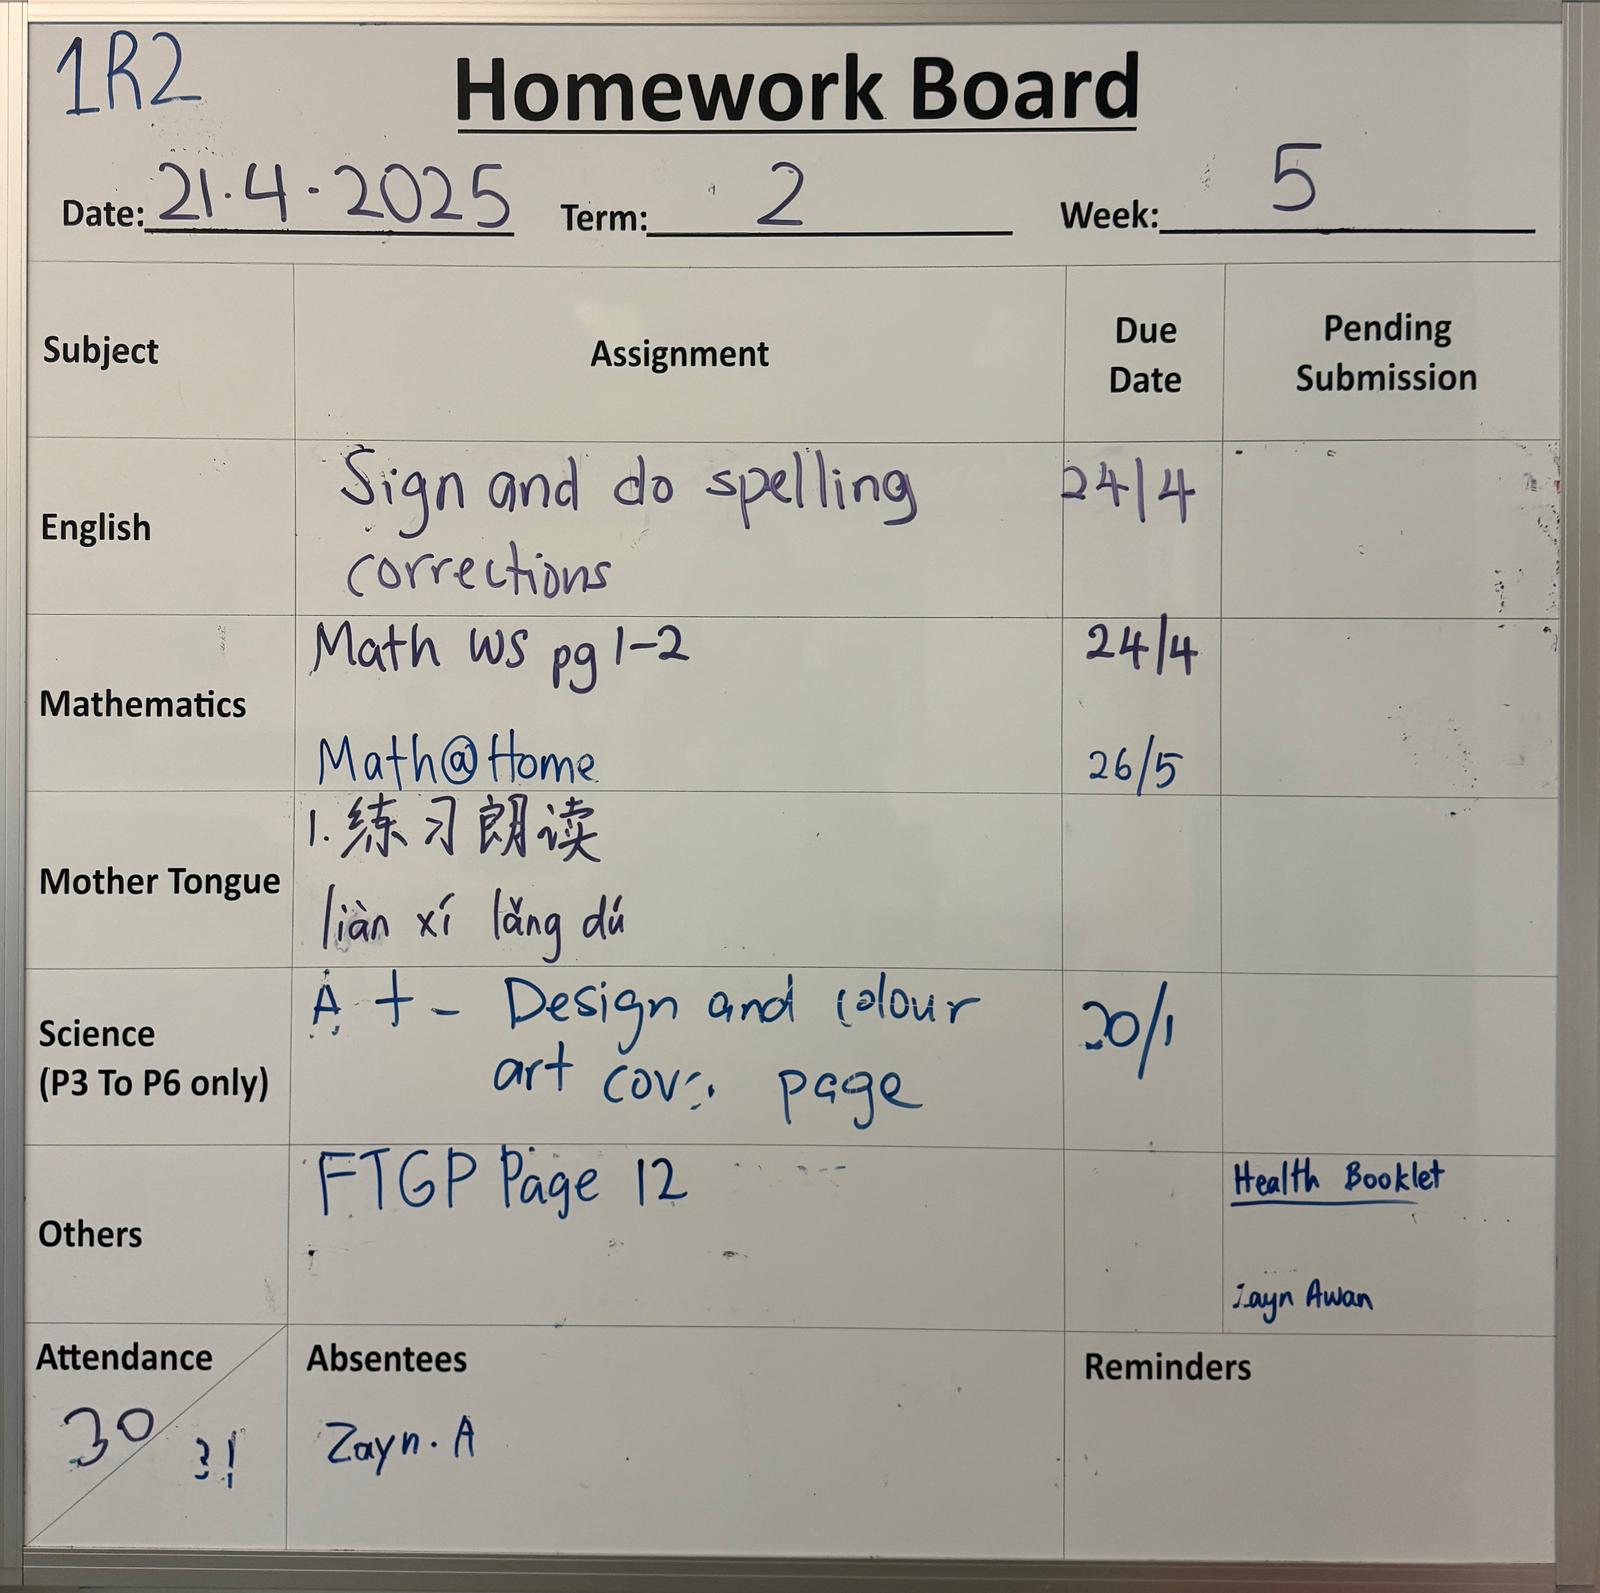 1R2
Homework Board
Date: 21.4.2025 Term: 2 Week: 5
Subject Assignment Due Date Pending Submission
English Sign and do spelling 24/4
corrections
Mathematics Math WS pg 1-2 24/4
Math@Home 26/5
Mother Tongue 1. 练习朗读
liàn xí lǎng dú
Science
(P3 To P6 only)
A t - Design and colour
art page
FTGP Page 12
Others
Health Booklet
Zayn Awan
Attendance Absentees Reminders
30 31 Zayn. A